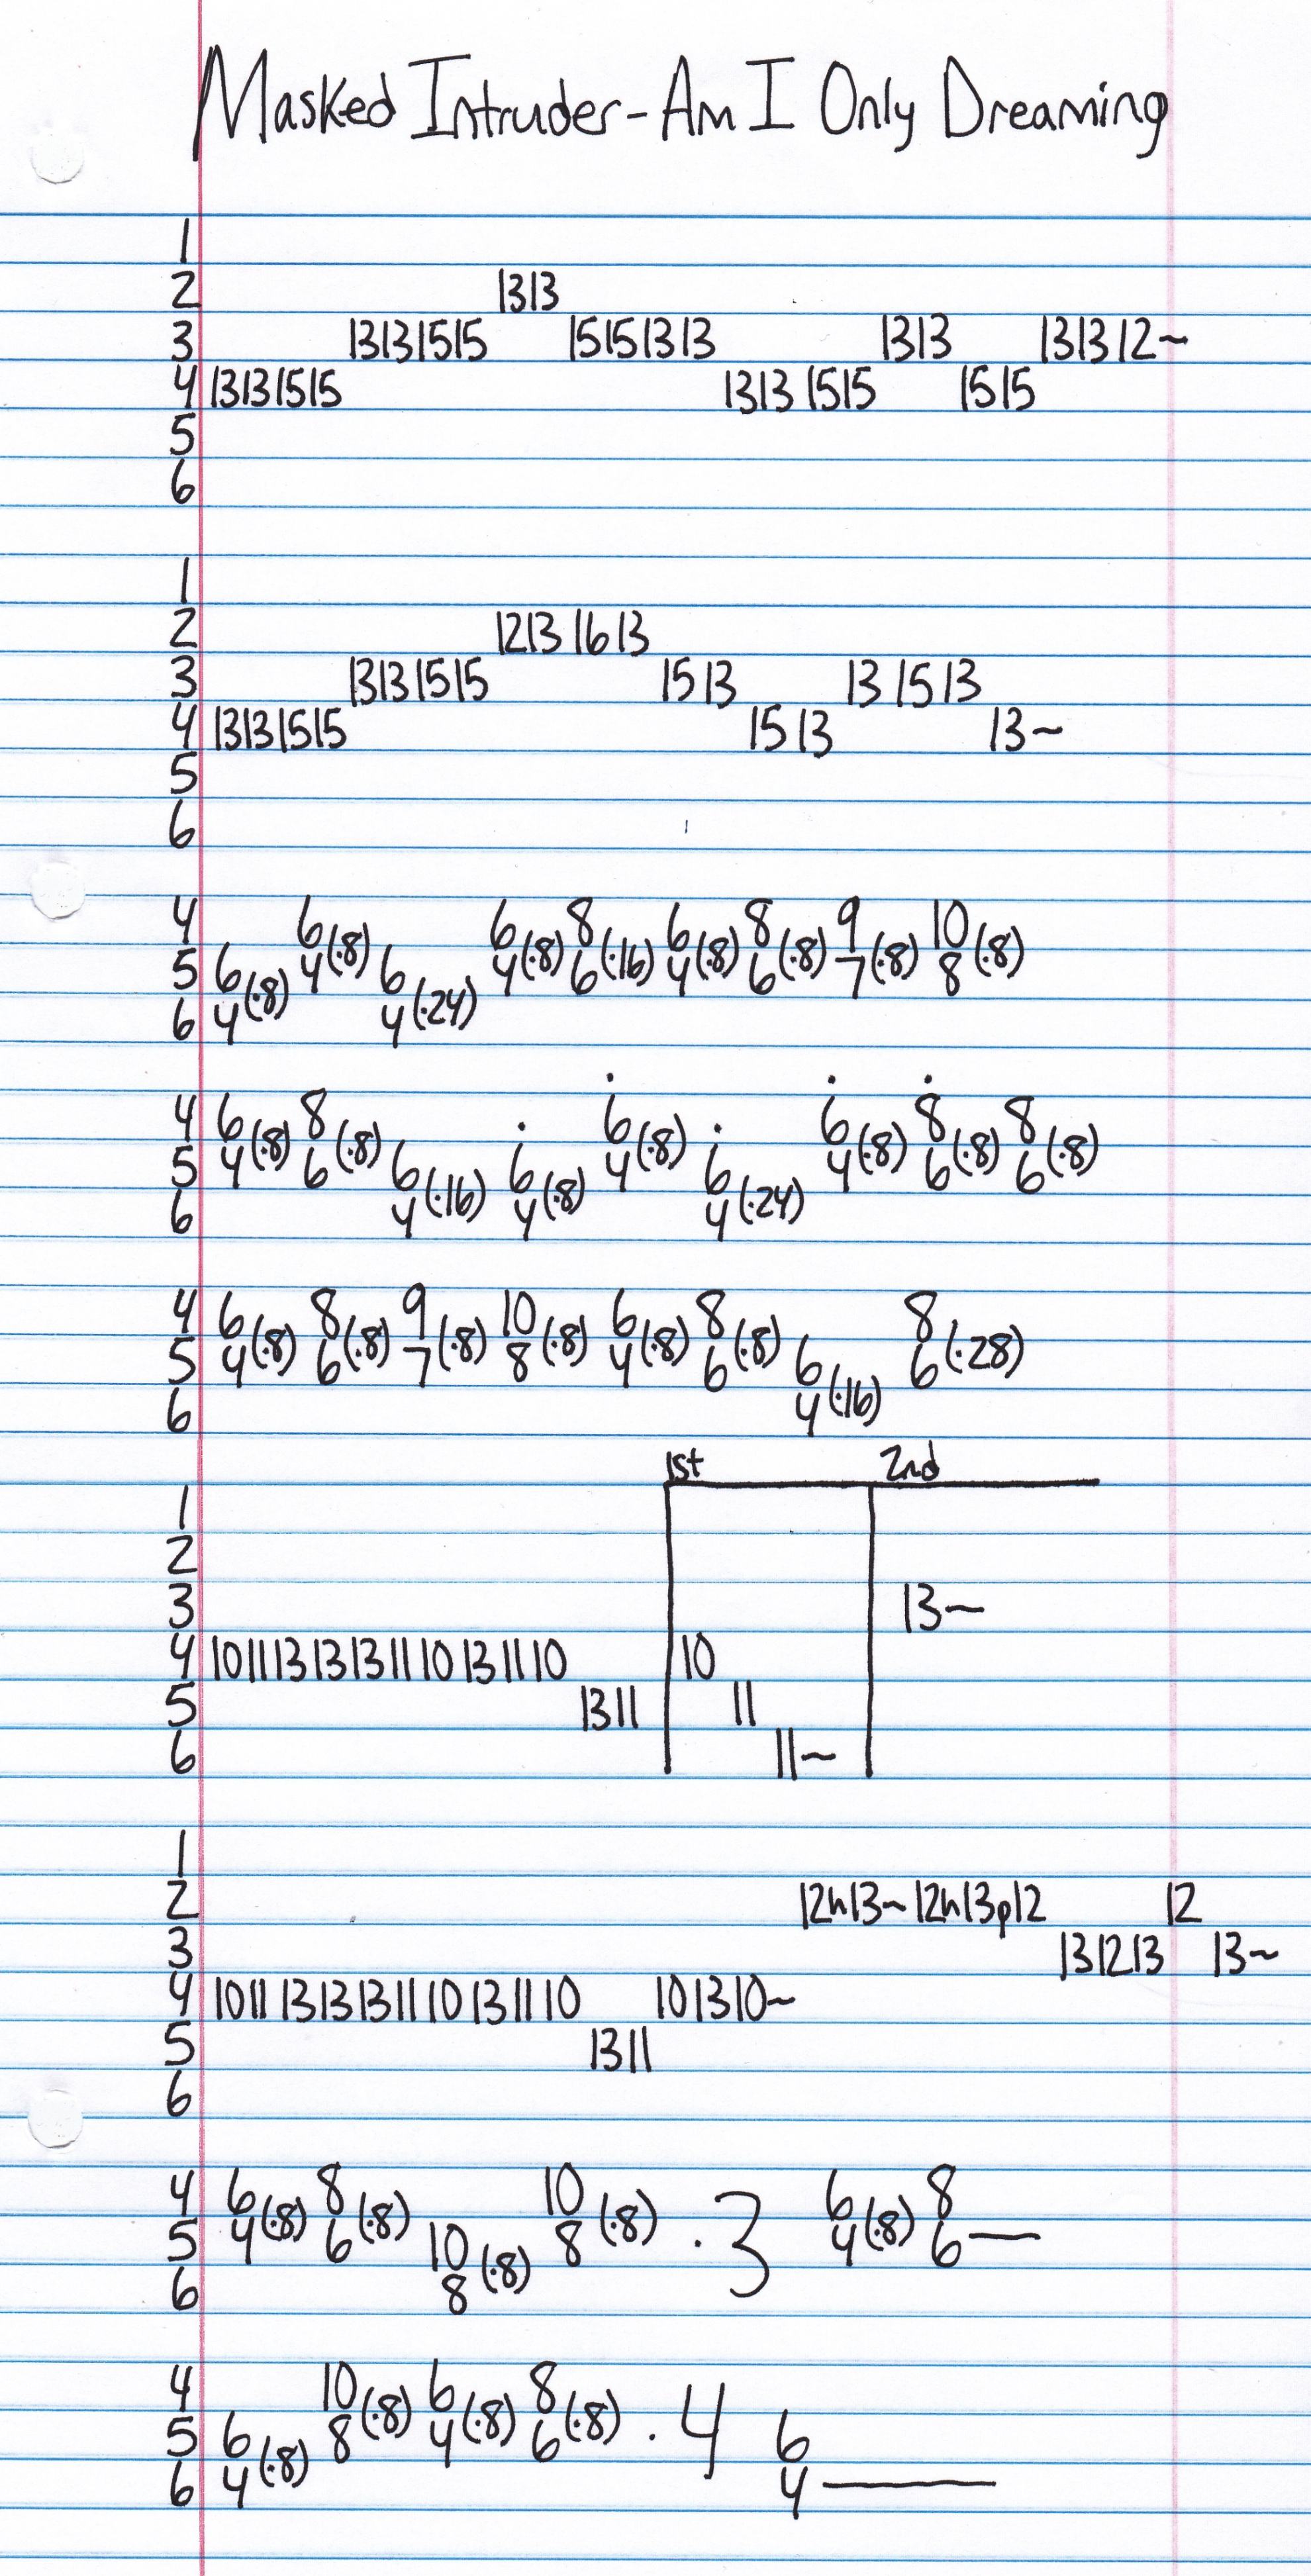 Masked Intruder - Am I Only Dreaming
1
2 1313
3 13131515 15151313 1313 131312~
4 13131515 13131515 1515
5
6
1
2 12131613
3 13131515 1513 131513
4 13131515 1513 13~
5
6
4 6 6 8 6 8 9 10
5 6(·8) 4(·8) 6 4(·8) 6(·16) 4(·8) 6(·8) 7(·8) 8(·8)
6 4 4(·24)
4 6 8 6 6 8 8
5 4(·8) 6(·8) 6 6 4(·8) 6 4(·8) 6(·8) 6(·8)
6 4(·16) 4(·8) 4(·24)
4 6 8 9 10 6 8 8
5 4(·8) 6(·8) 7(·8) 8(·8) 4(·8) 6(·8) 6 6(·28)
6 4(·16)
1st 2nd
1
2
3 13~
4 10111313131110131110 10
5 1311 11
6 11~
1
2 12h13~12h13p12 12
3 131213 13~
4 10111313131110131110 101310~
5 1311
6
4 6 8 10 6 8
5 4(·8) 6(·8) 10 8(·8) ·3 4(·8) 6—
6 8(·8)
4 10 6 8
5 6 8(·8) 4(·8) 6(·8) ·4 6
6 4(·8) 4—